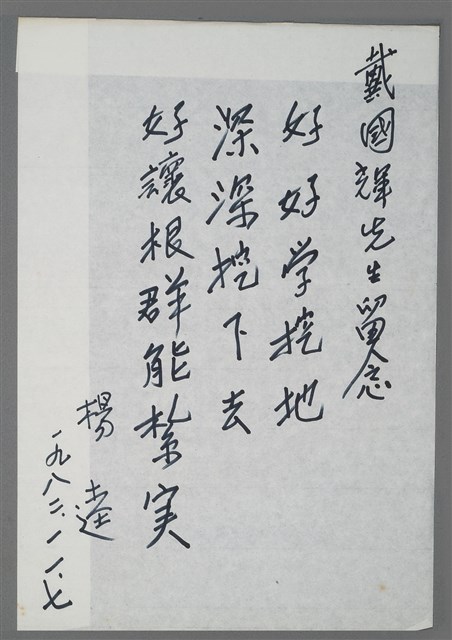 戴國煇先生留念
好好学挖地
深深挖下去
好讓根群能紮実
楊逵
一九八二.一一.七